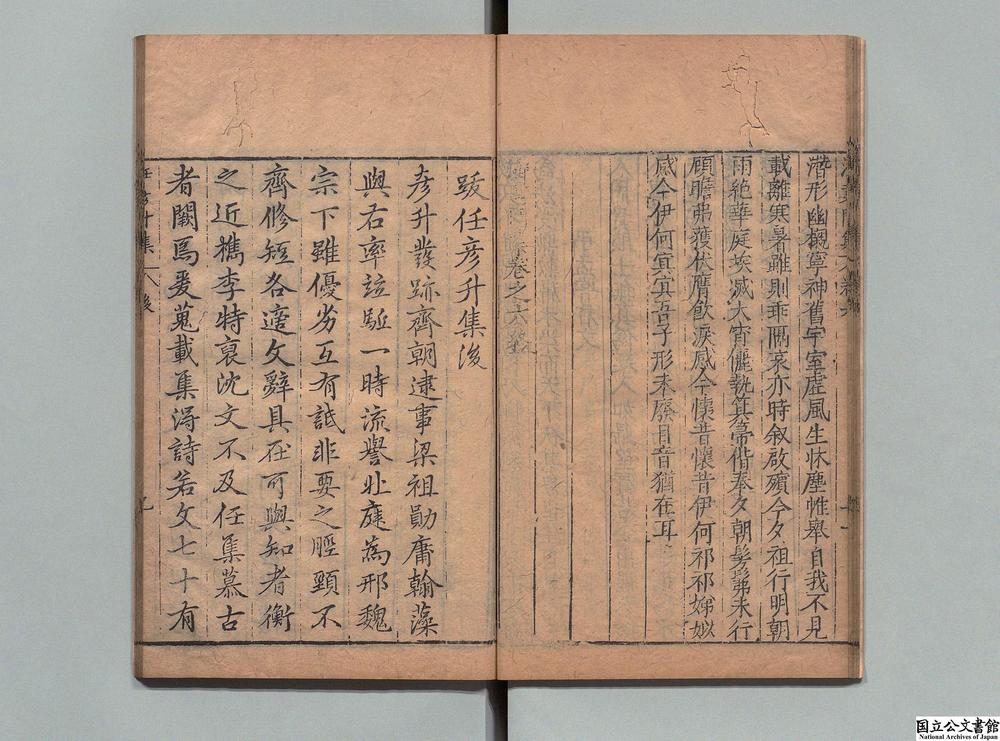 潛形幽櫬寧神舊宇室虛風生牀塵帷舉自我不見
載離寒暑雖則乖隔哀亦時叙啟殯今夕祖行明朝
雨絕華庭埃滅大宵儷執箕箒偕奉夕朝髣髴未行
顧瞻弗獲伏膺飲淚感今懷昔懷昔伊何祁祁娣姒
感今伊何冥冥吾子形未廢目音猶在耳
卷之六終
跋任彥升集後
彥升發跡齊朝逮事梁祖勛庸翰藻
與右率竝驅一時流譽北庭為邢魏
宗下雖優劣互有詆非要之脛頸不
齊脩短各適文辭具在可與知者衡
之近攜李特裒沈文不及任集慕古
者闕焉爰蒐載集淂詩若文七十有
任彥升集 後
国立公文書館
National Archives of Japan